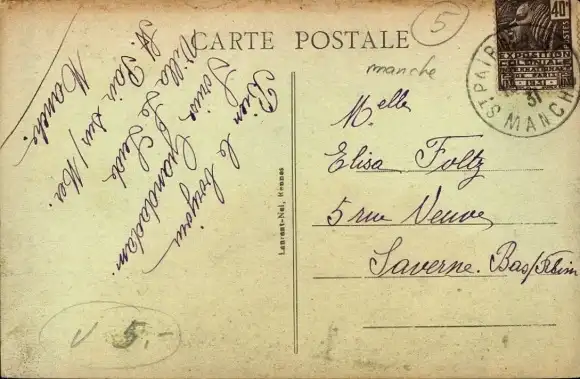 CARTE POSTALE
5
40c
POSTES
EXPOSITION
COLONIALE
INTERNATIONALE
PARIS
1931
ST PAIR
31
MANCHE
manche
Melle
Elisa Foltz
5 rue Neuve
Saverne. Bas/Rhin
Laurent-Nel, Rennes
Bien le bonjour
Louise
Villa Le
St. Pair sur/Mer.
Manche.
V 5.-